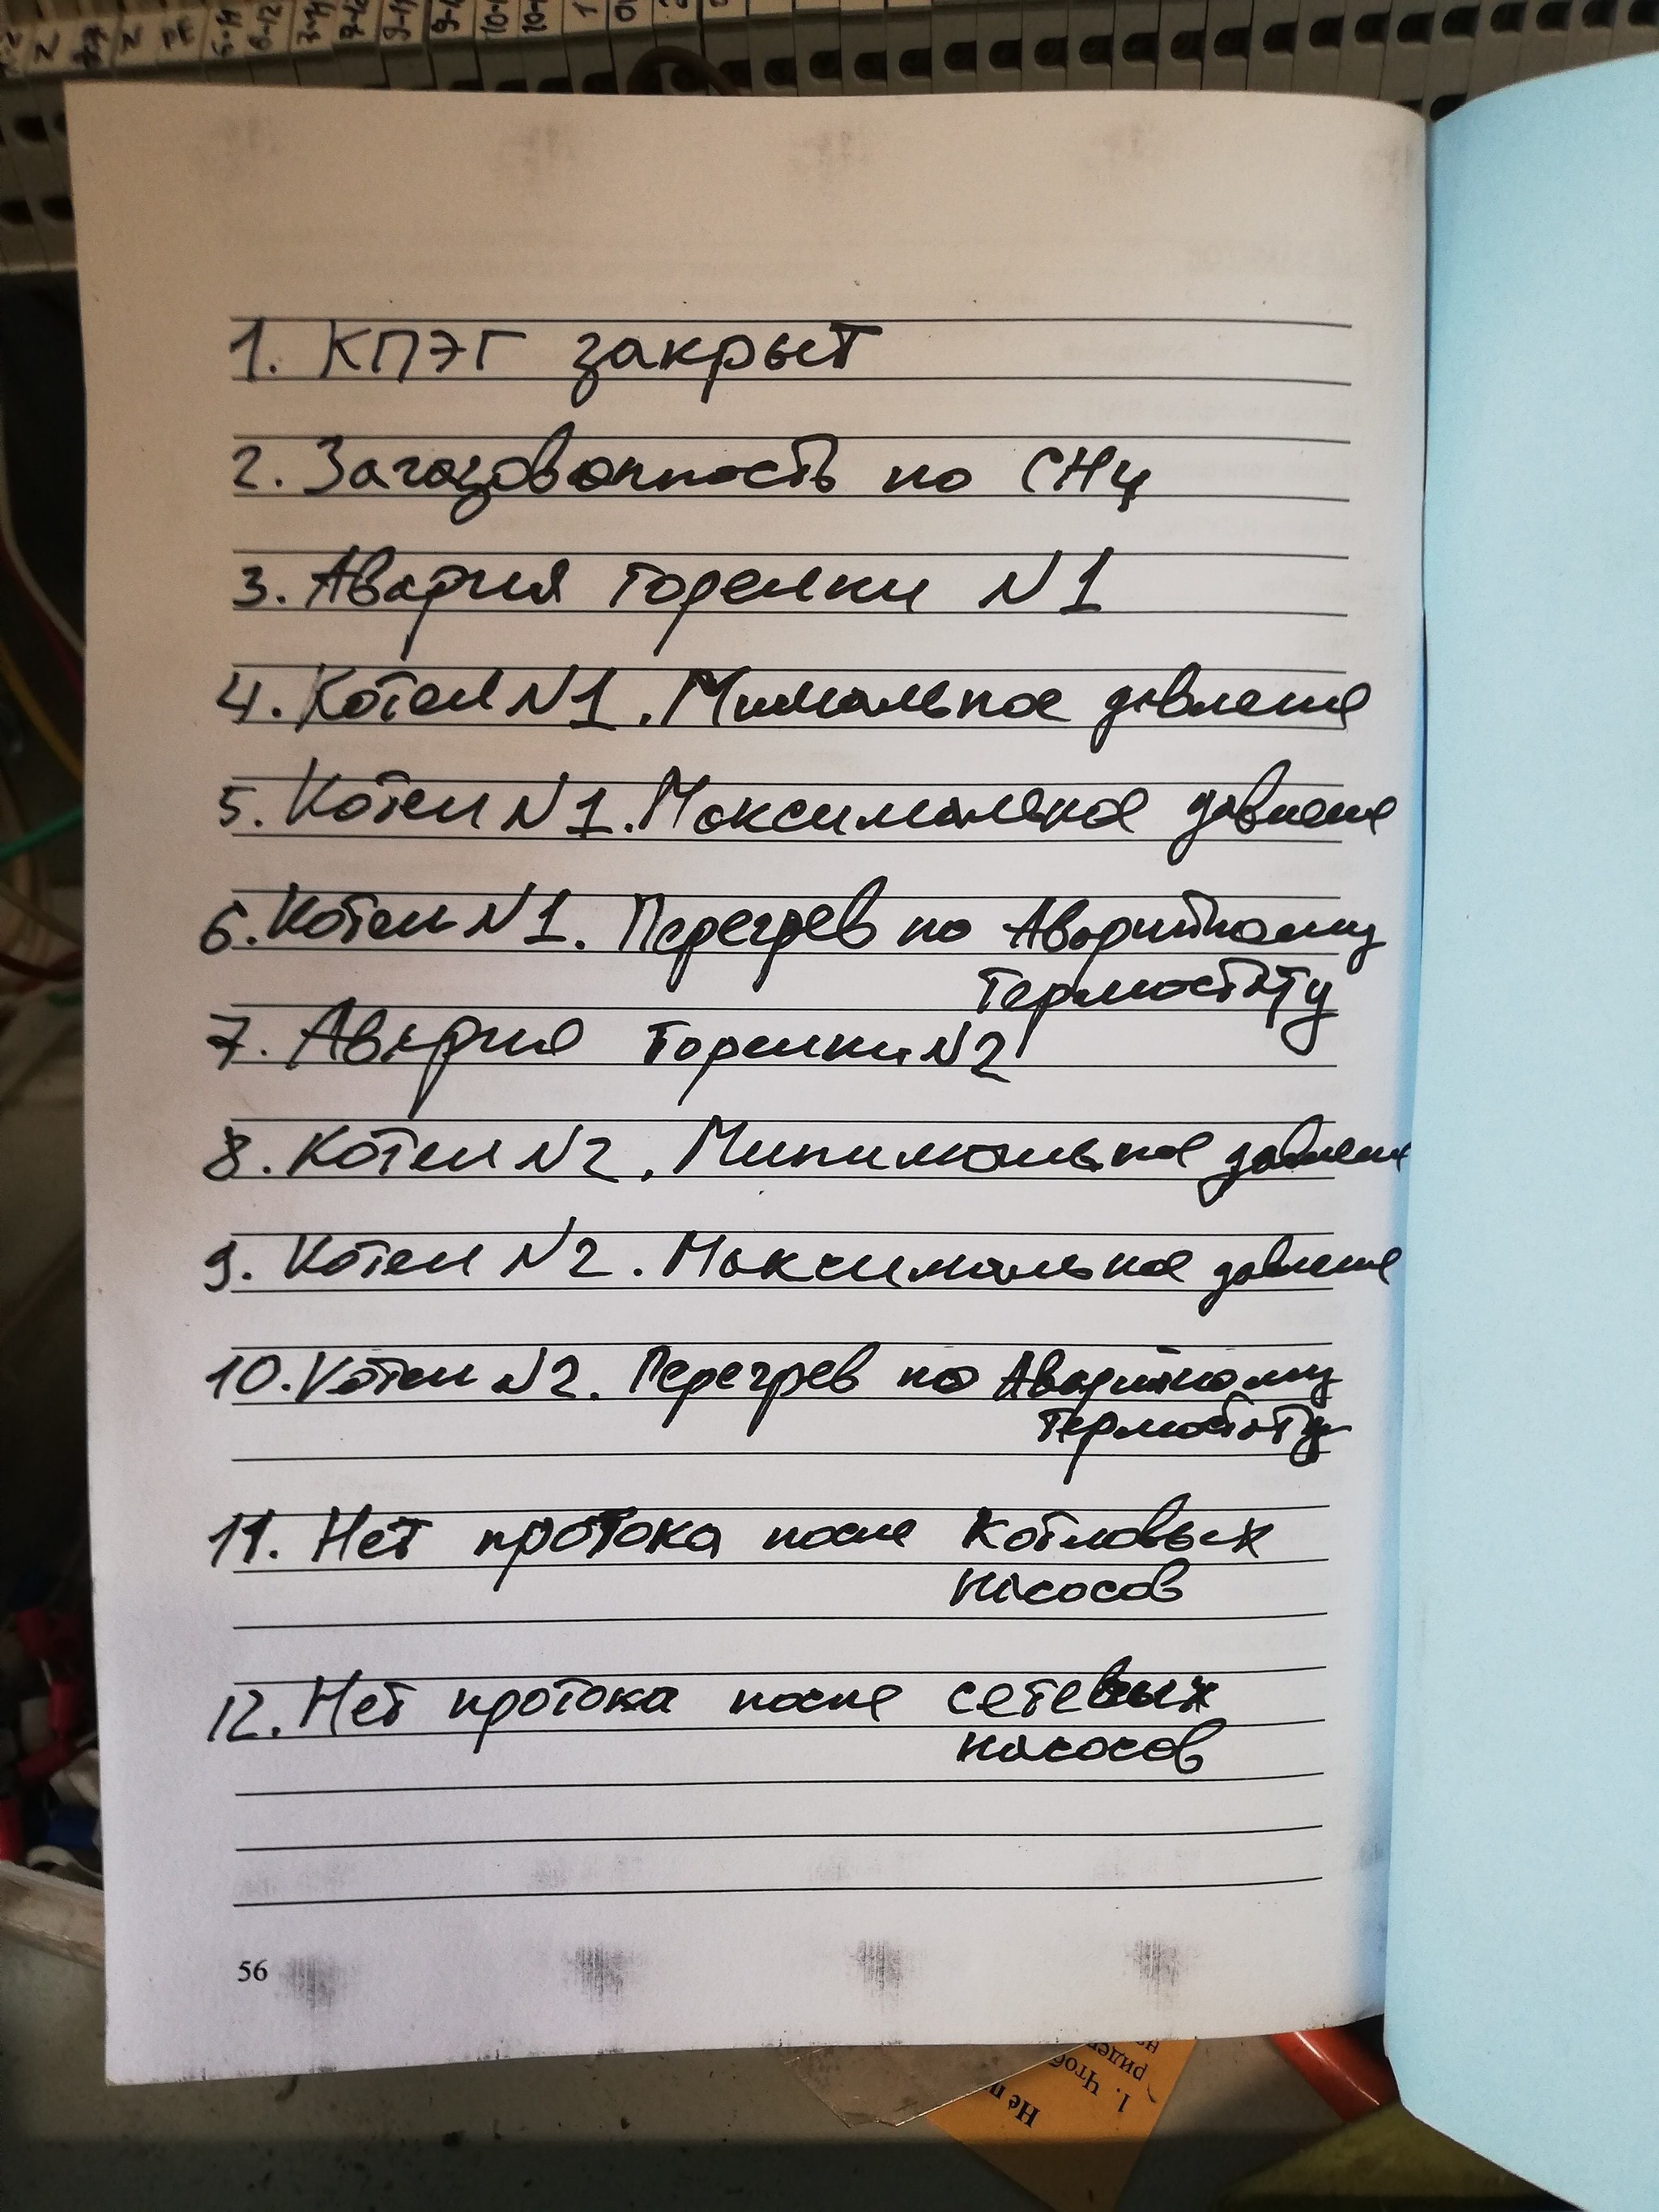 1. КПЭГ закрыт
2. Загазованность по CH4
3. Авария горелки N1
4. Котел N1. Мимальное давление
5. Котел N1. Максимальное давление
6. Котел N1. Перегрев по Аварийному
термостату
7. Авария горелки N2
8. Котел N2. Минимальное давление
9. Котел N2. Максимальное давление
10. Котел N2. Перегрев по Аварийному
термостату
11. Нет протока после котловых
насосов
12. Нет протока после сетевых
насосов
56
Не п
1. Чтоб
ридер